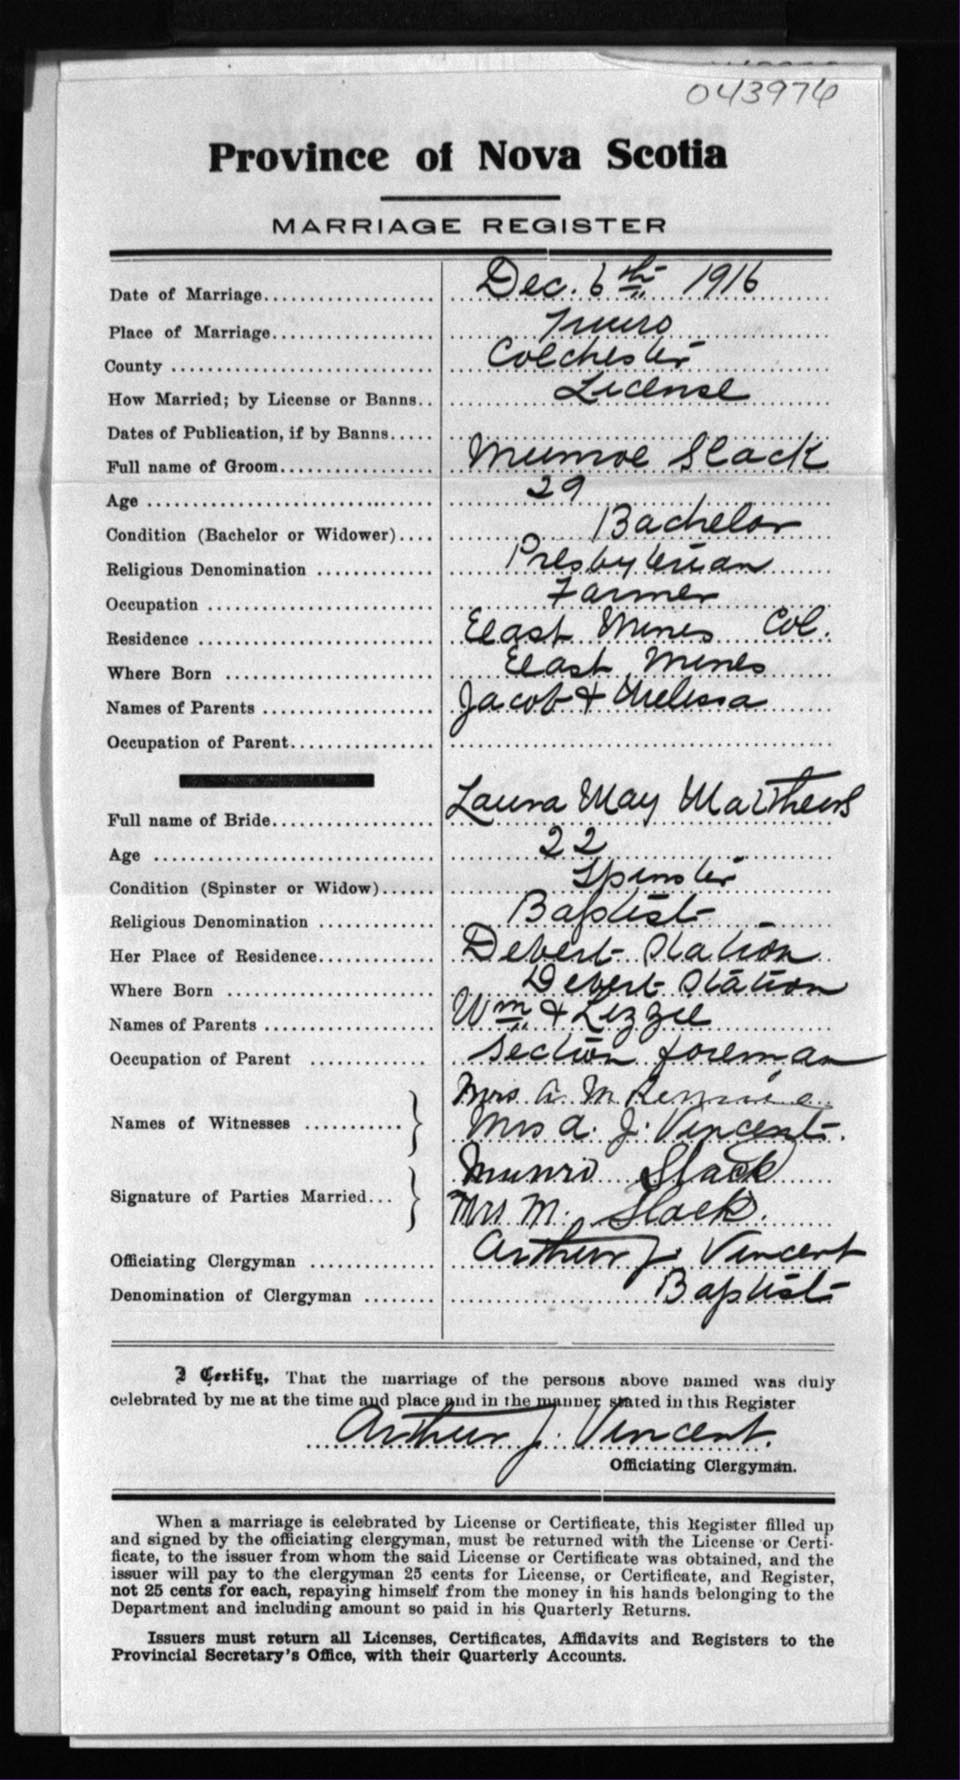 043976
Province of Nova Scotia
MARRIAGE REGISTER
Date of Marriage.................... Dec. 6th 1916
Place of Marriage................... Truro
County ............................. Colchester
How Married; by License or Banns.. License
Dates of Publication, if by Banns.....
Full name of Groom.................. Munroe Slack
Age ................................ 29
Condition (Bachelor or Widower).... Bachelor
Religious Denomination ............. Presbyterian
Occupation ......................... Farmer
Residence .......................... East Mines Col.
Where Born ......................... East Mines
Names of Parents ................... Jacob & Melissa
Occupation of Parent................
Full name of Bride.................. Laura May Matthews
Age ................................ 22
Condition (Spinster or Widow)...... Spinster
Religious Denomination ............. Baptist
Her Place of Residence.............. Debert Station
Where Born ......................... Debert Station
Names of Parents ................... Wm & Lizzie
Occupation of Parent ............... Section foreman
Names of Witnesses ........... } Mrs A. M. Rennie
Mrs A. J. Vincent.
Signature of Parties Married... } Munro Slack
Mrs M. Slack.
Officiating Clergyman .............. Arthur J. Vincent
Denomination of Clergyman ........ Baptist
I Certify, That the marriage of the persons above named was duly
celebrated by me at the time and place and in the manner stated in this Register
Arthur J. Vincent.
Officiating Clergyman.
When a marriage is celebrated by License or Certificate, this Register filled up
and signed by the officiating clergyman, must be returned with the License or Certi-
ficate, to the issuer from whom the said License or Certificate was obtained, and the
issuer will pay to the clergyman 25 cents for License, or Certificate, and Register,
not 25 cents for each, repaying himself from the money in his hands belonging to the
Department and including amount so paid in his Quarterly Returns.
Issuers must return all Licenses, Certificates, Affidavits and Registers to the
Provincial Secretary's Office, with their Quarterly Accounts.